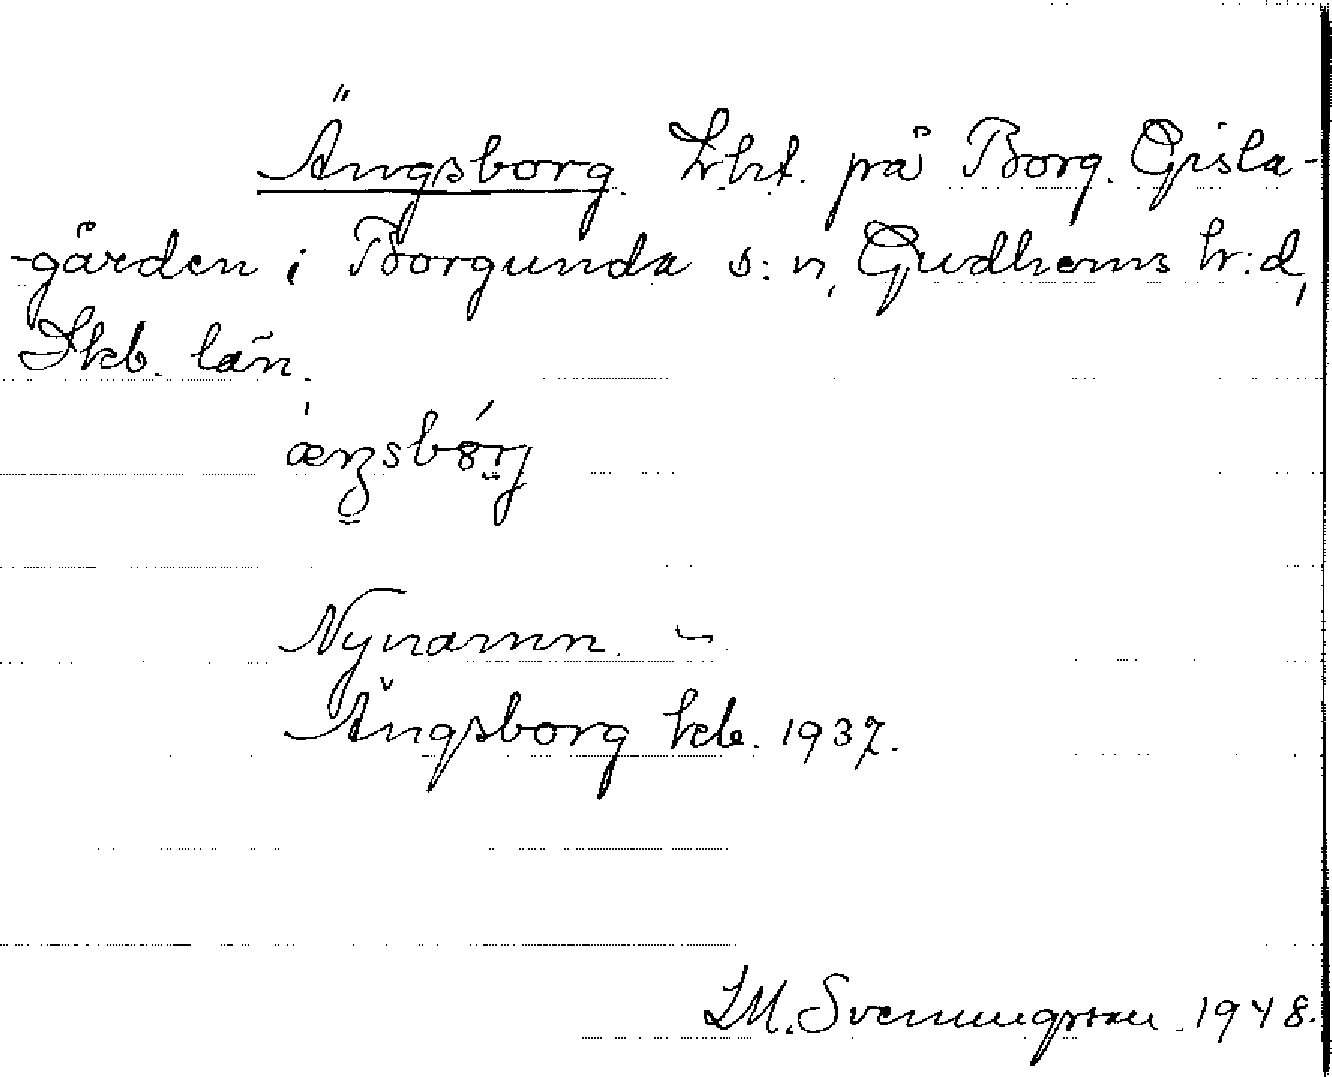 Ängsborg. Lht. på Borg. Gisla-
-gården i Borgunda s:n, Gudhems h:d,
Skb. län.
Nynamn. –
Ängsborg kb. 1937.
LM. Svenungsson 1948.